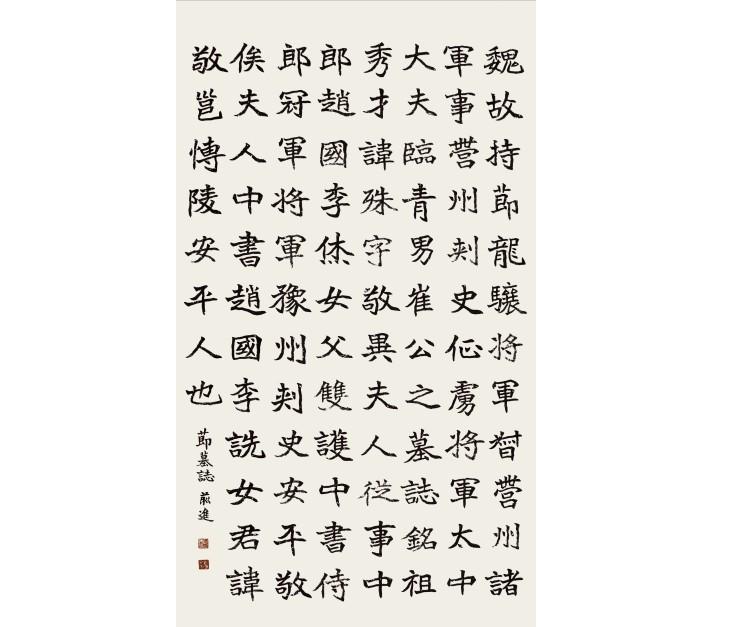 魏故持莭龍驤将軍督營州諸
軍事營州刾史征虜将軍太中
大夫臨青男崔公之墓誌銘祖
秀才諱殊字敬異夫人從事中
郎趙國李休女父雙護中書侍
郎冠軍将軍豫州刾史安平敬
侯夫人中書趙國李詵女君諱
敬邕愽陵安平人也
莭墓誌 前進